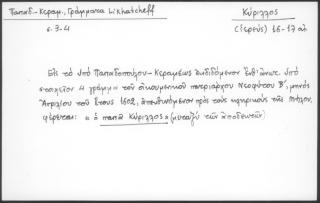 Παπαδ.-Κεραμ., Γράμματα Likhatcheff
σ. 3-4
Κύριλλος
(ἱερεύς) 16-17 αἰ.
Εἰς τὸ ὑπὸ Παπαδοπούλου-Κεραμέως ἐκδιδόμενον ἔνθ' ἀνωτ. ὑπὸ
στοιχεῖον 4 γράμμα τοῦ οἰκουμενικοῦ πατριάρχου Νεοφύτου Β', μηνὸς
Ἀπριλίου τοῦ ἔτους 1602, ἀπευθυνόμενον πρὸς τοὺς κληρικοὺς τῆς
φέρεται: « ὁ παπᾶ Κύριλλος » (μεταξὺ τῶν ἀποδεκτῶν)